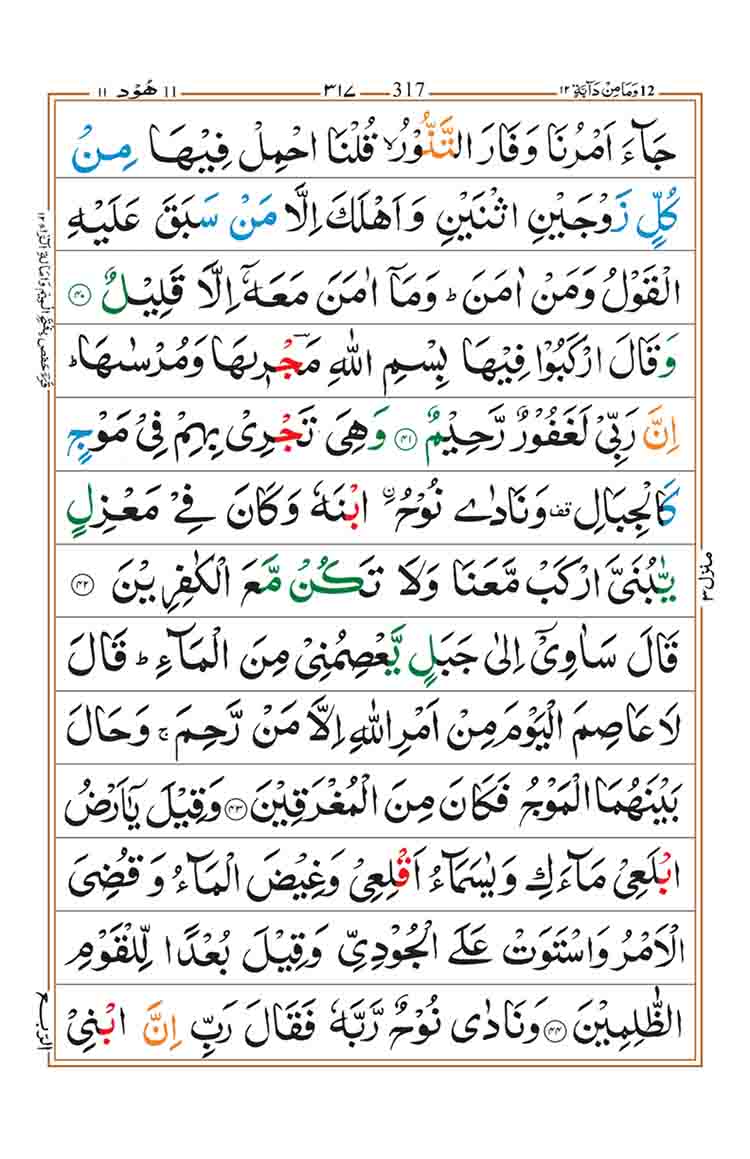 12 وَمَا مِنْ دَآبَّةٍ ۱۲ 317 ۳۱۷ 11 هُوْد ۱۱
جَآءَ اَمْرُنَا وَفَارَ التَّنُّوْرُ ۙ قُلْنَا احْمِلْ فِيْهَا مِنْ
كُلٍّ زَوْجَيْنِ اثْنَيْنِ وَاَهْلَكَ اِلَّا مَنْ سَبَقَ عَلَيْهِ
الْقَوْلُ وَمَنْ اٰمَنَ ؕ وَمَآ اٰمَنَ مَعَهٗۤ اِلَّا قَلِيْلٌ ۴۰
وَقَالَ ارْكَبُوْا فِيْهَا بِسْمِ اللّٰهِ مَجْرٖىهَا وَمُرْسٰىهَا ؕ
اِنَّ رَبِّىْ لَغَفُوْرٌ رَّحِيْمٌ ۴۱ وَهِىَ تَجْرِىْ بِهِمْ فِىْ مَوْجٍ
كَالْجِبَالِ قف وَنَادٰى نُوْحُ ۨ ابْنَهٗ وَكَانَ فِىْ مَعْزِلٍ
يّٰبُنَىَّ ارْكَبْ مَّعَنَا وَلَا تَكُنْ مَّعَ الْكٰفِرِيْنَ ۴۲
قَالَ سَاٰوِىْۤ اِلٰى جَبَلٍ يَّعْصِمُنِىْ مِنَ الْمَآءِ ؕ قَالَ
لَا عَاصِمَ الْيَوْمَ مِنْ اَمْرِ اللّٰهِ اِلَّا مَنْ رَّحِمَ ۚ وَحَالَ
بَيْنَهُمَا الْمَوْجُ فَكَانَ مِنَ الْمُغْرَقِيْنَ ۴۳ وَقِيْلَ يٰۤاَرْضُ
ابْلَعِىْ مَآءَكِ وَيٰسَمَآءُ اَقْلِعِىْ وَغِيْضَ الْمَآءُ وَقُضِىَ
الْاَمْرُ وَاسْتَوَتْ عَلَى الْجُوْدِىِّ وَقِيْلَ بُعْدًا لِّلْقَوْمِ
الظّٰلِمِيْنَ ۴۴ وَنَادٰى نُوْحٌ رَّبَّهٗ فَقَالَ رَبِّ اِنَّ ابْنِىْ
منزل ۳
الربع